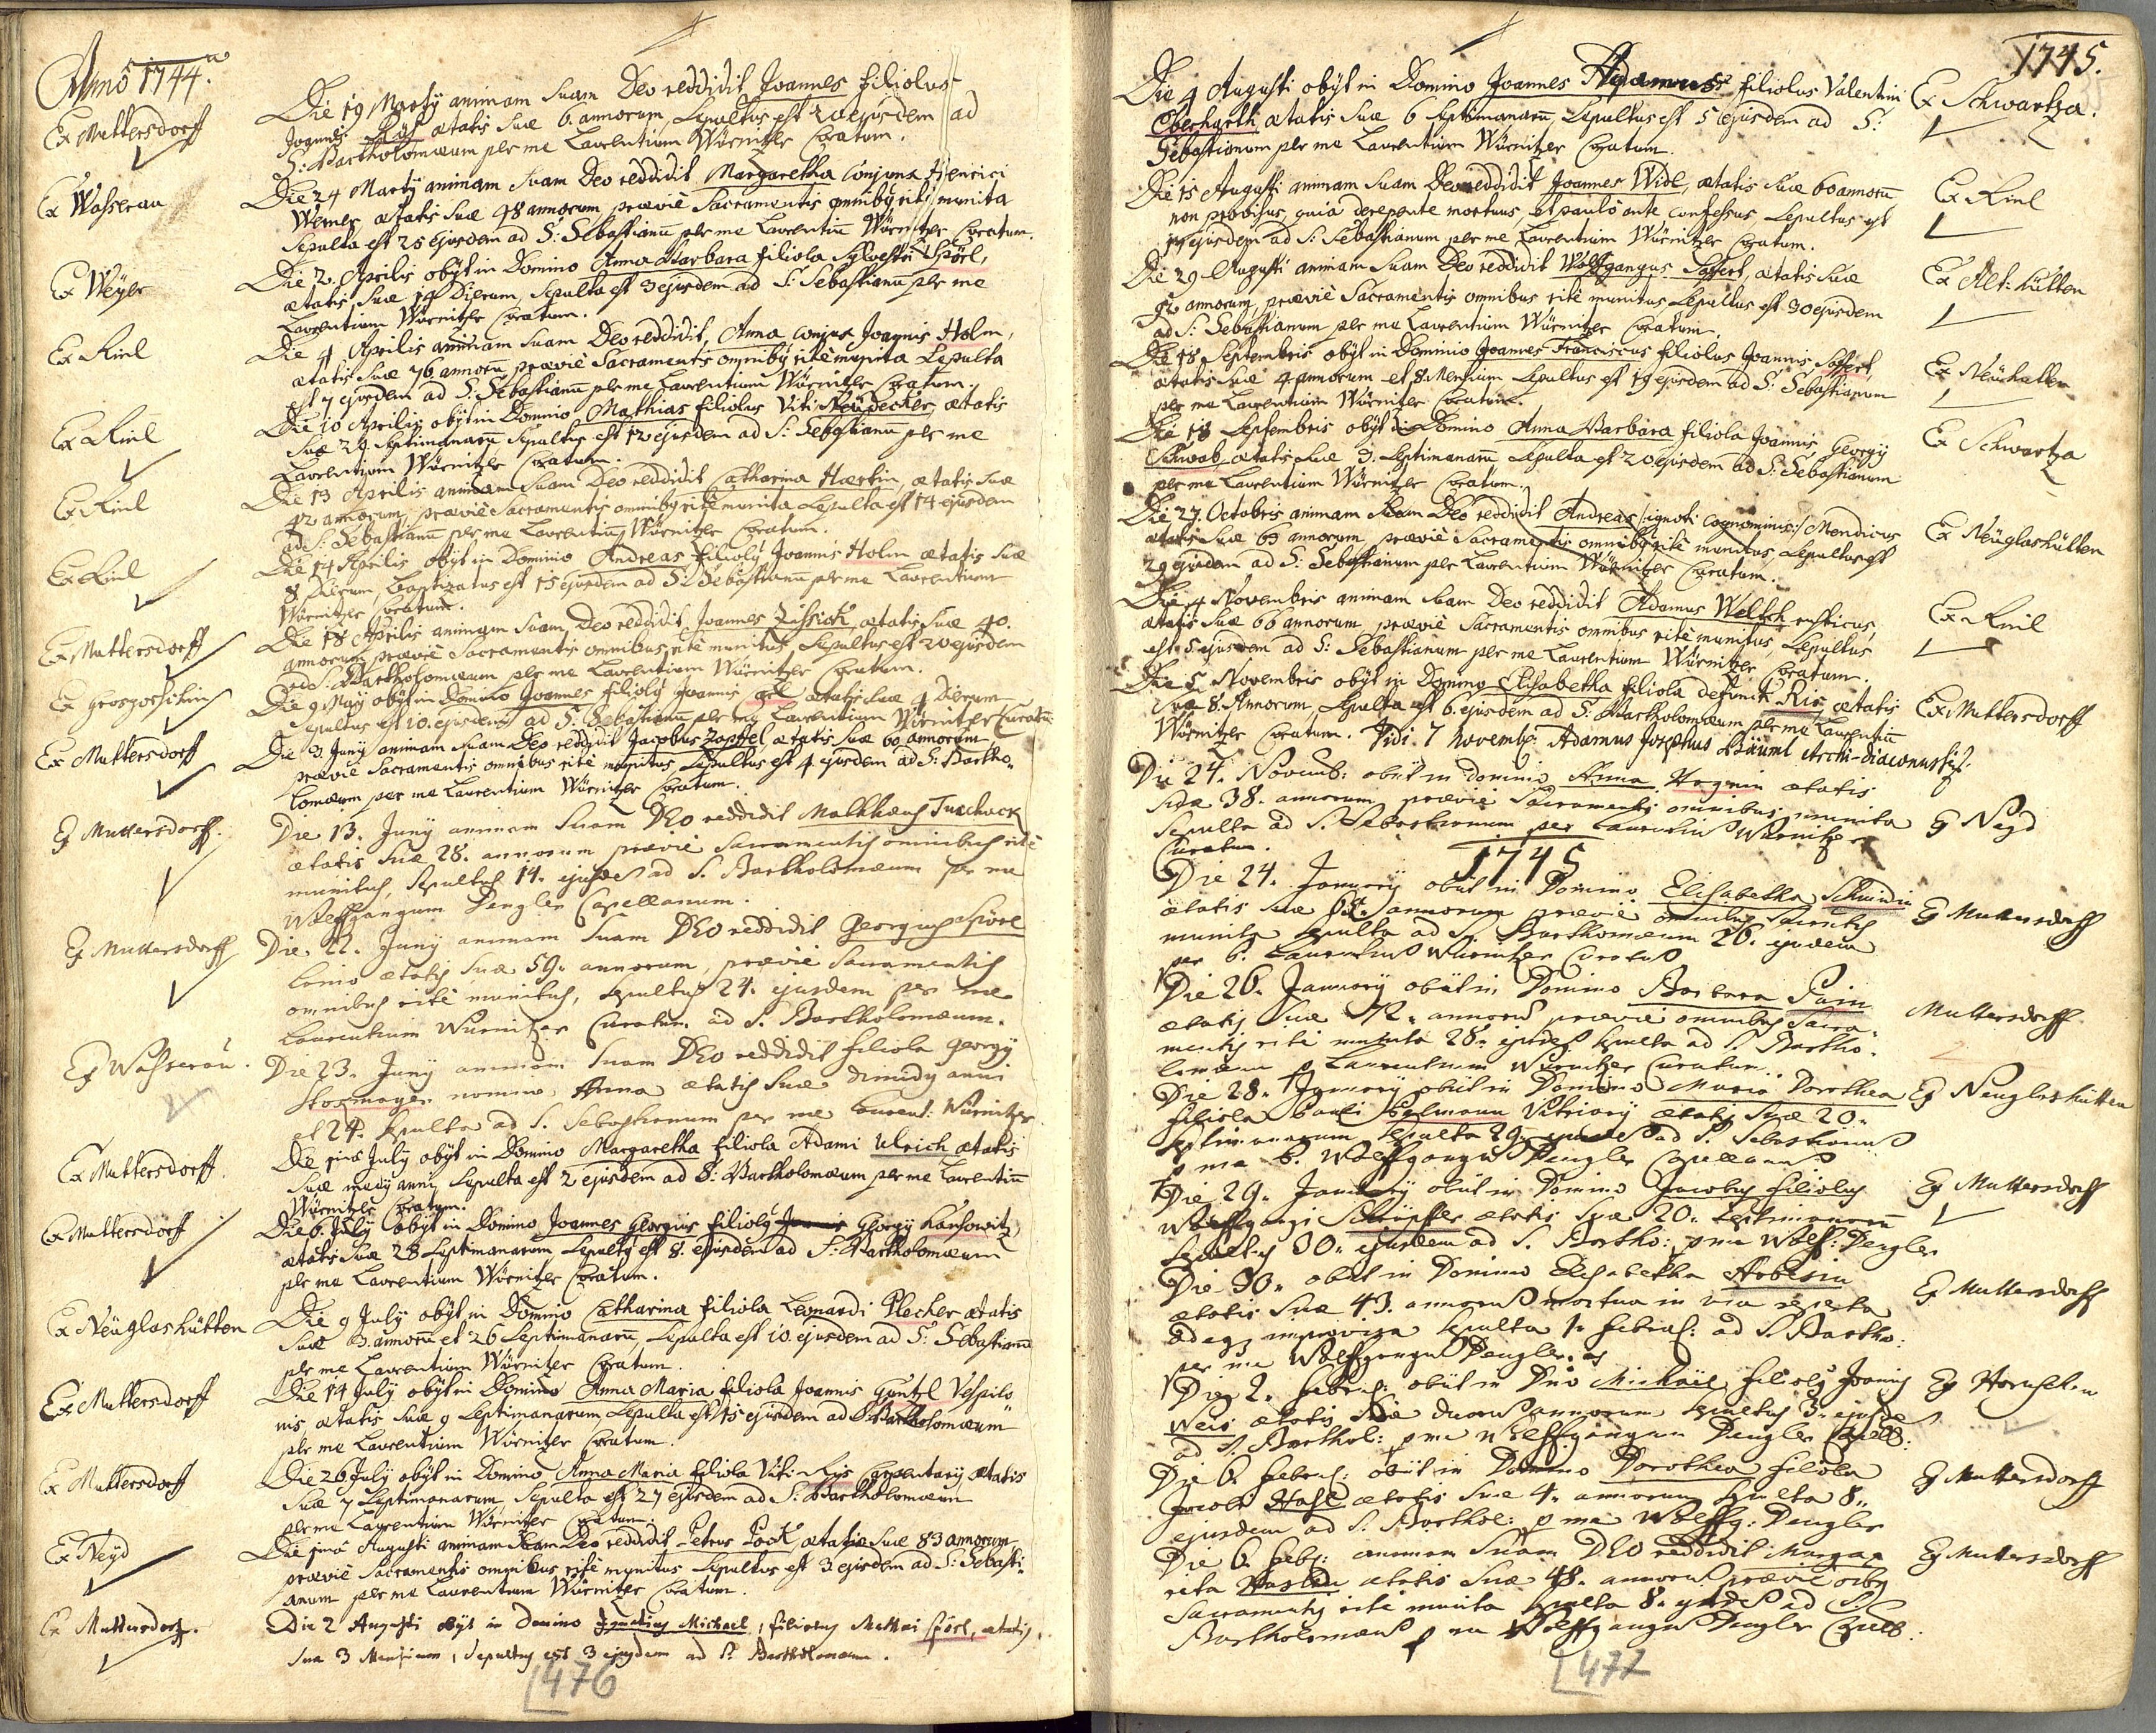 Anno 1744.
Ex Muttersdorff
Die 19 Martÿ animam suam Deo reddidit Joannes filiolus
Joannis ætatis suæ 6. annorum, sepultus est 20 ejusdem ad
S: Bartholomæum per me Laurentium Würnitzer Curatum.
Ex Wasserau
Die 24 Martÿ animam suam Deo reddidit Margaretha conjunx Henrici
Werner ætatis suæ 48 annorum, præviè Sacramentis omnibꝯ ritè munita
sepulta est 25 ejusdem ad S: Sebastianū per me Laurentiū Würnitzer Curatum.
Ex Weÿer
Die 2. Aprilis obÿt in Domino Anna Barbara filiola Sylvestri Spörl,
ætatis suæ 14 Dierum, sepulta est 3 ejusdem ad S: Sebastianū per me
Laurentium Würnitzer Curatum.
Ex Rinl
Die 4 Aprilis animam suam Deo reddidit, Anna conjunx Joannis Holm,
ætatis suæ 76 annorū præviè Sacramentis omnibꝯ ritè munita sepulta
est 7 ejusdem ad S: Sebastianū per me Laurentium Würnitzer Curatum.
Ex Rinl
Die 10 Aprilis obÿt in Domino Mathias filiolus Viti Neüdecker, ætatis
suæ 29. septimanarū sepultus est 12 ejusdem ad S: Sebastianū per me
Laurentium Würnitzer Curatum.
Ex Rinl
Die 13 Aprilis animam suam Deo reddidit Catharina Hartin, ætatis suæ
42 annorum, præviè Sacramentis omnibꝯ ritè munita sepulta est 14 ejusdem
ad S: Sebastianū per me Laurentiū Würnitzer Curatum.
Ex Rinl
Die 14 Aprilis obÿt in Domino Andreas filiolꝯ Joannis Holm ætatis suæ
8 dierum, baptizatus est 15 ejusdem ad S: Sebastianū per me Laurentium
Würnitzer Curatum.
Ex Muttersdorff
Die 18 Aprilis animam suam Deo reddidit Joannes Zissick, ætatis suæ 40.
annorum præviè Sacramentis omnibus ritè munitus, sepultus est 20 ejusdem
ad S: Bartholomæum per me Laurentium Würnitzer Curatum.
Ex Grosgorschin
Die 9 Maÿ obÿt in Domino Joannes filiolꝯ Joannis ætatis suæ 4 dierum
sepultus est 10. ejusdem ad S: Sebastianū per me Laurentium Würnitzer Curatū.
Ex Muttersdorff
Die 3 Junÿ animam suam Deo reddidit Jacobus Zapffel, ætatis suæ 60 annorum
præviè Sacramentis omnibus ritè munitus, sepultus est 4 ejusdem ad S: Bartho„
lomæum per me Laurentium Würnitzer Curatum.
Ex Muttersdorff.
Die 13. Junÿ animam suam DEO reddidit Matthæus Tuschack
ætatis suæ 28. annorum præviè Sacramentis omnibus ritè
munitus, sepultus 14. ejusdem ad S. Bartholomæum per me
Wolffgangum Dengler Capellanum.
Ex Muttersdorff
Die 22. Junÿ animam suam DEO reddidit Georgius Spörl
ætatis suæ 59. annorum, præviè Sacramentis
omnibus ritè munitus, sepultus 24. ejusdem per me
Laurentium Würnitzer Curatum. ad S. Bartholomæum.
Ex Wasserau.
Die 23. Junÿ animam suam DEO reddidit filiola Georgÿ
Stogmayer nomine Anna ætatis suæ dimidÿ anni
et 24. sepulta ad S. Sebastianum per me Laurent: Würnitzer
Ex Muttersdorff.
Die Julÿ obÿt in Domino Margaretha filiola Adami Ulrich ætatis
suæ medÿ anni, sepulta est 2 ejusdem ad S: Bartholomæum per me Laurentiū
Würnitzer Curatum.
Ex Muttersdorff
Die 6. Julÿ obÿt in Domino Joannes Georgius filiolꝯ Georgÿ Kanhowitz,
ætatis suæ 28 septimanarum sepultꝯ est 8. ejusdem ad S: Bartholomæum
per me Laurentium Würnitzer Curatum.
Ex Neüglashütten
Die 9 Julÿ obÿt in Domino Catharina filiola Leonardi Plecher ætatis
suæ 3. annorū et 26 septimanarū, sepulta est 10. ejusdem ad S: Sebastianū
per me Laurentium Würnitzer Curatum.
Ex Muttersdorff
Die 14 Julÿ obÿt in Domino Anna Maria filiola Joannis Güntzl Vespilo„
nis, ætatis suæ 9 septimanarum sepulta est 15 ejusdem ad S: Bartholomæum
per me Laurentium Würnitzer Curatum.
Ex Muttersdorff
Die 26 Julÿ obÿt in Domino Anna Maria filiola Viti Ris Carpentarÿ ætatis
suæ 7 septimanarum, sepulta est 27 ejusdem ad S: Bartholomæum
per me Laurentium Würnitzer Curatum.
Ex Neÿd
Die Augusti animam suam Deo reddidit Petrus Pock ætatis suæ 83 annorum,
præviè Sacramentis omnibus ritè munitus sepultus est 3 ejusdem ad S: Sebasti„
anum per me Laurentium Würnitzer Curatum.
Ex Muttersdorf.
Die 2 Augusti obÿt in Domino Ignatius Michael, filiolus Mathei Spörl, ætatis,
suæ 3 Mensium, sepultus est 3 ejusdem ad S: Bartholomæum.
476
1745.
Die 4 Augusti obÿt in Domino Joannes Adamus filiolus Valentini
Eberharth ætatis suæ 6 septimanarū, sepultus est 5 ejusdem ad S:
Sebastianum per me Laurentium Würnitzer Curatum.
Ex Schwartza.
Die 15 Augusti animam suam Deo reddidit Joannes Widl, ætatis suæ 60 annorū
non provisus, quia derepente mortuus, et paulò ante confessus, sepultus est
ejusdem ad S: Sebastianum per me Laurentium Würnitzer Curatum.
Ex Rinl
Die 29 Augusti animam suam Deo reddidit Wolffgangus Soffert, ætatis suæ
92 annorum, præviè Sacramentis omnibus ritè munitus, sepultus est 30 ejusdem
ad S: Sebastianum per me Laurentium Würnitzer Curatum.
Ex Alt: hütten
Die 18 Septembris obÿt in Dominio Joannes Franciscus filiolus Joannis Soffert,
ætatis suæ 4 annorum et 8. Mensium sepultus est 19 ejusdem ad S: Sebastianum
per me Laurentium Würnitzer Curatum.
Ex Neühütten
Die 18 Septembris obÿt in Domino Anna Barbara filiola Joannis Georgÿ
Schwab, ætatis suæ 3. septimanarū sepulta est 20 ejusdem ad S: Sebastianum
per me Laurentium Würnitzer Curatum.
Ex Schwartza
Die 27. Octobris animam suam Deo reddidit Andreas /:ignoti cognominis:/ Mendicus
ætatis suæ 60 annorum, præviè Sacramentis omnibꝯ ritè munitus, sepultus est
29 ejusdem ad S: Sebastianum per Laurentium Würnitzer Curatum.
Ex Neüglashütten
Die 4 Novembris animam suam Deo reddidit Adamus Weltsch rusticus,
ætatis suæ 66 annorum, præviè Sacramentis omnibus ritè munitus, sepultus
est 5 ejusdem ad S: Sebastianum per me Laurentium Würnitzer Curatum.
Ex Rinl
Die 5 Novembris obÿt in Domino Elisabetha filiola defuncti Ris, ætatis
suæ 8. Annorum, sepulta est 6. ejusdem ad S: Bartholomæum per me Laurentiū
Würnitzer Curatum. Vidi. 7 Novembr: Adamus Josephus Bäuml Archi-diaconus
Ex Muttersdorff
Die 24. Novemb: obiit in Domino Anna ætatis
suæ 38. annorum præviè Sacramentis omnibus munita
sepulta ad S. Sebastianum per Laurentium Würnitzer
Curatum.
Ex Neyd
1745
Die 24. Januarÿ obiit in Domino Elisabetha
ætatis suæ annorum præviè omnibus Sacramentis
munita sepulta ad S. Bartholomæum 26. ejusdem
per Laurentium Würnitzer Curatum
Ex Muttersdorff
Die 26. Januarÿ obiit in Domino Barbara
ætatis suæ 72. annorum præviè omnibus Sacra„
mentis ritè munita 28. ejusdem sepulta ad S. Bartho„
lomæum p Laurentium Würnitzer Curatum.
Muttersdorff.
Die 28. Januarÿ obiit in Domino Maria Dorothea
filiola Pauli Vitriarÿ ætatis suæ 20.
septimanarum sepulta 29. ejusdem ad S. Sebastianum
p me Wolffgangum Dengler Capellanum
Ex Neuglashütten
Die 29. Januarÿ obiit in Domino Jacobus filiolus
Wolffgangi Schöpffer ætatis suæ 20. septimanarum
sepultus 30. ejusdem ad S. Bartho: p me Wolf: Dengler
Ex Muttersdorff
Die 30. obiit in Domino Elisabetha
ætatis suæ 43. annorum mortua in via reperta
adeoq improvisa sepulta 1. Febru: ad S. Bartho:
per me Wolffgangum Dengler.
Ex Muttersdorff
Die 2. Febru: obiit in Dño Michäel filiolꝯ Joannis
Weis ætatis suæ duorum annorum sepultus 3. ejusdem
ad S. Barthol: p me Wolffgangum Dengler Capell:
Die 6. Febru: obiit in Domino Dorothea filiola
Jacobi Hasl ætatis suæ 4. annorum sepulta 8.
ejusdem ad S. Barthol: p me Wolffg: Dengler
Ex Muttersdorff
Die 6. Feb: animam suam DEO reddidit Marga„
reta ætatis suæ 48. annorum præviè oibꝯ
Sacramentis ritè munita sepulta 8. ejusdem ad S.
Bartholomæum p me Wolffgangum Dengler Capell:
Ex Muttersdorff
477